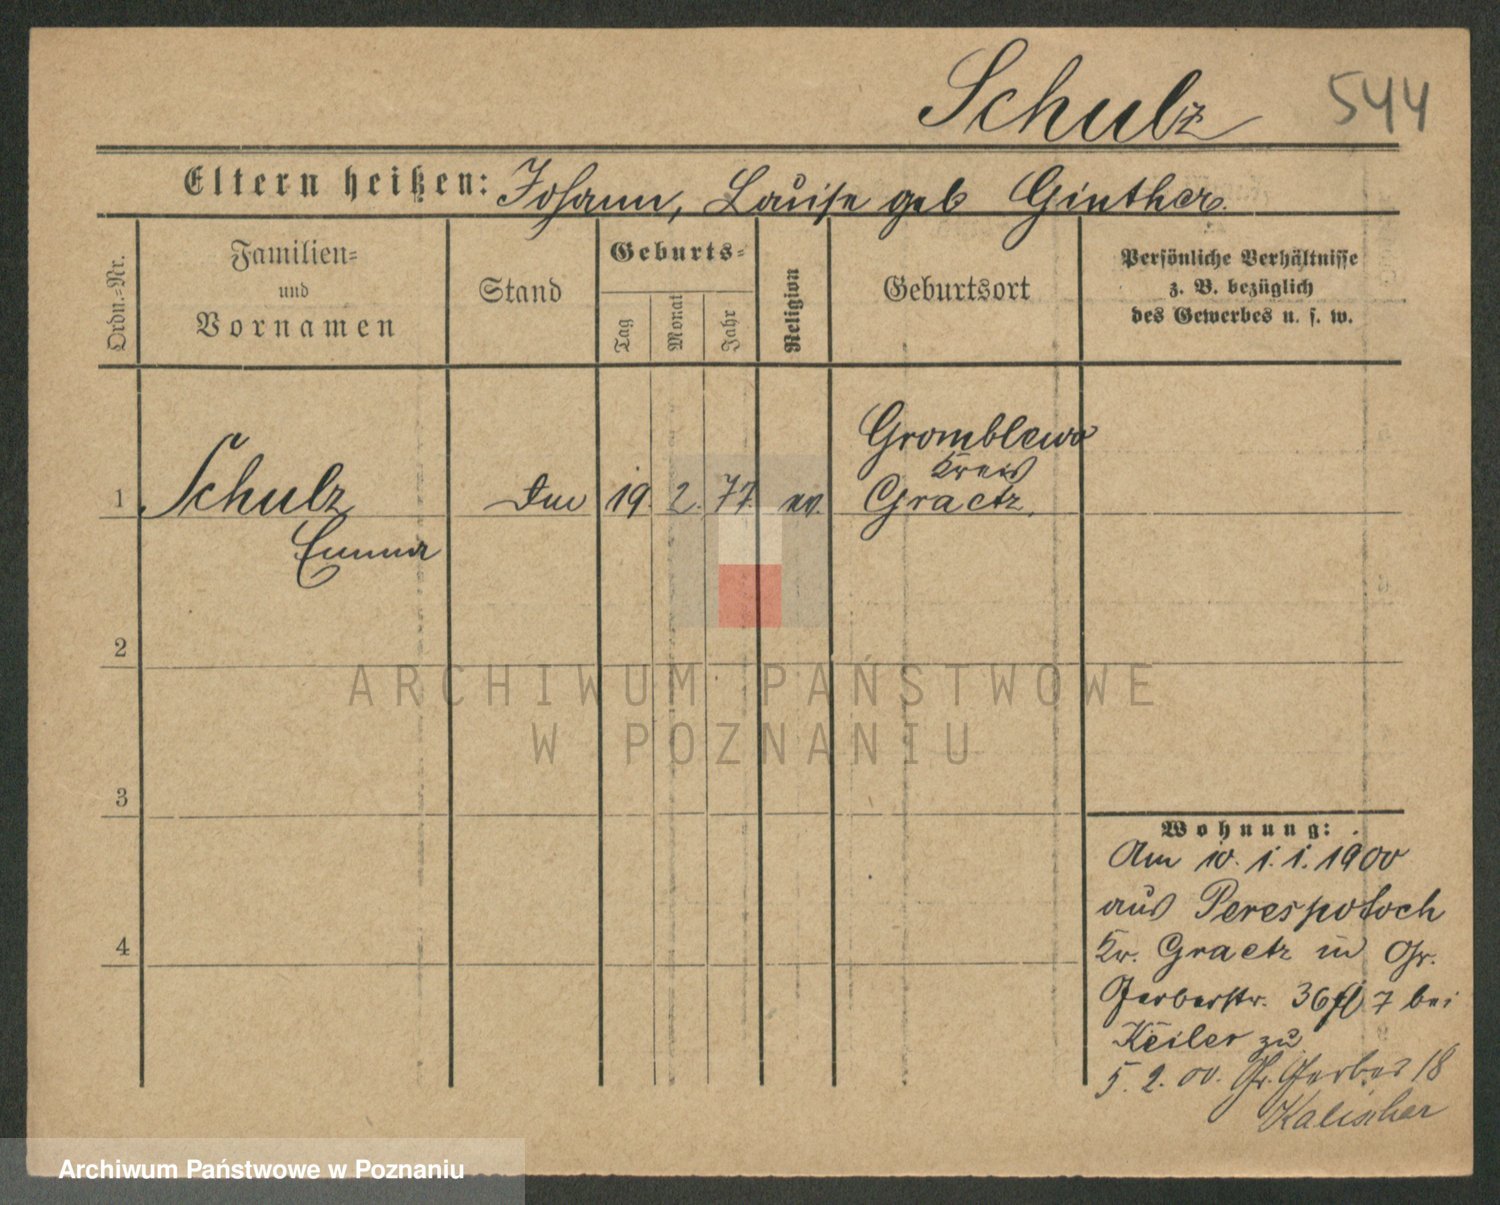 Schulz 544
Eltern heißen: Johann, Louise geb Ginther.
Ordn.-Nr.
Familien-
und
Vornamen
Stand
Geburts-
Tag
Monat
Jahr
Religion
Geburtsort
Persönliche Verhältnisse
z. B. bezüglich
des Gewerbes u. s. w.
Gromblewo
Kreis
1 Schulz 19. 2. 77. ev. Graetz.
Emma
2
3
4
Wohnung:
Am 10. 1. 1900
aus Perespotoch
Kr. Graetz in Gr.
Gerberstr. 36 7 bei
Keiler zu
5. 2. 00. Gr. Gerber 18
Kalischer
ARCHIWUM PAŃSTWOWE
W POZNANIU
Archiwum Państwowe w Poznaniu